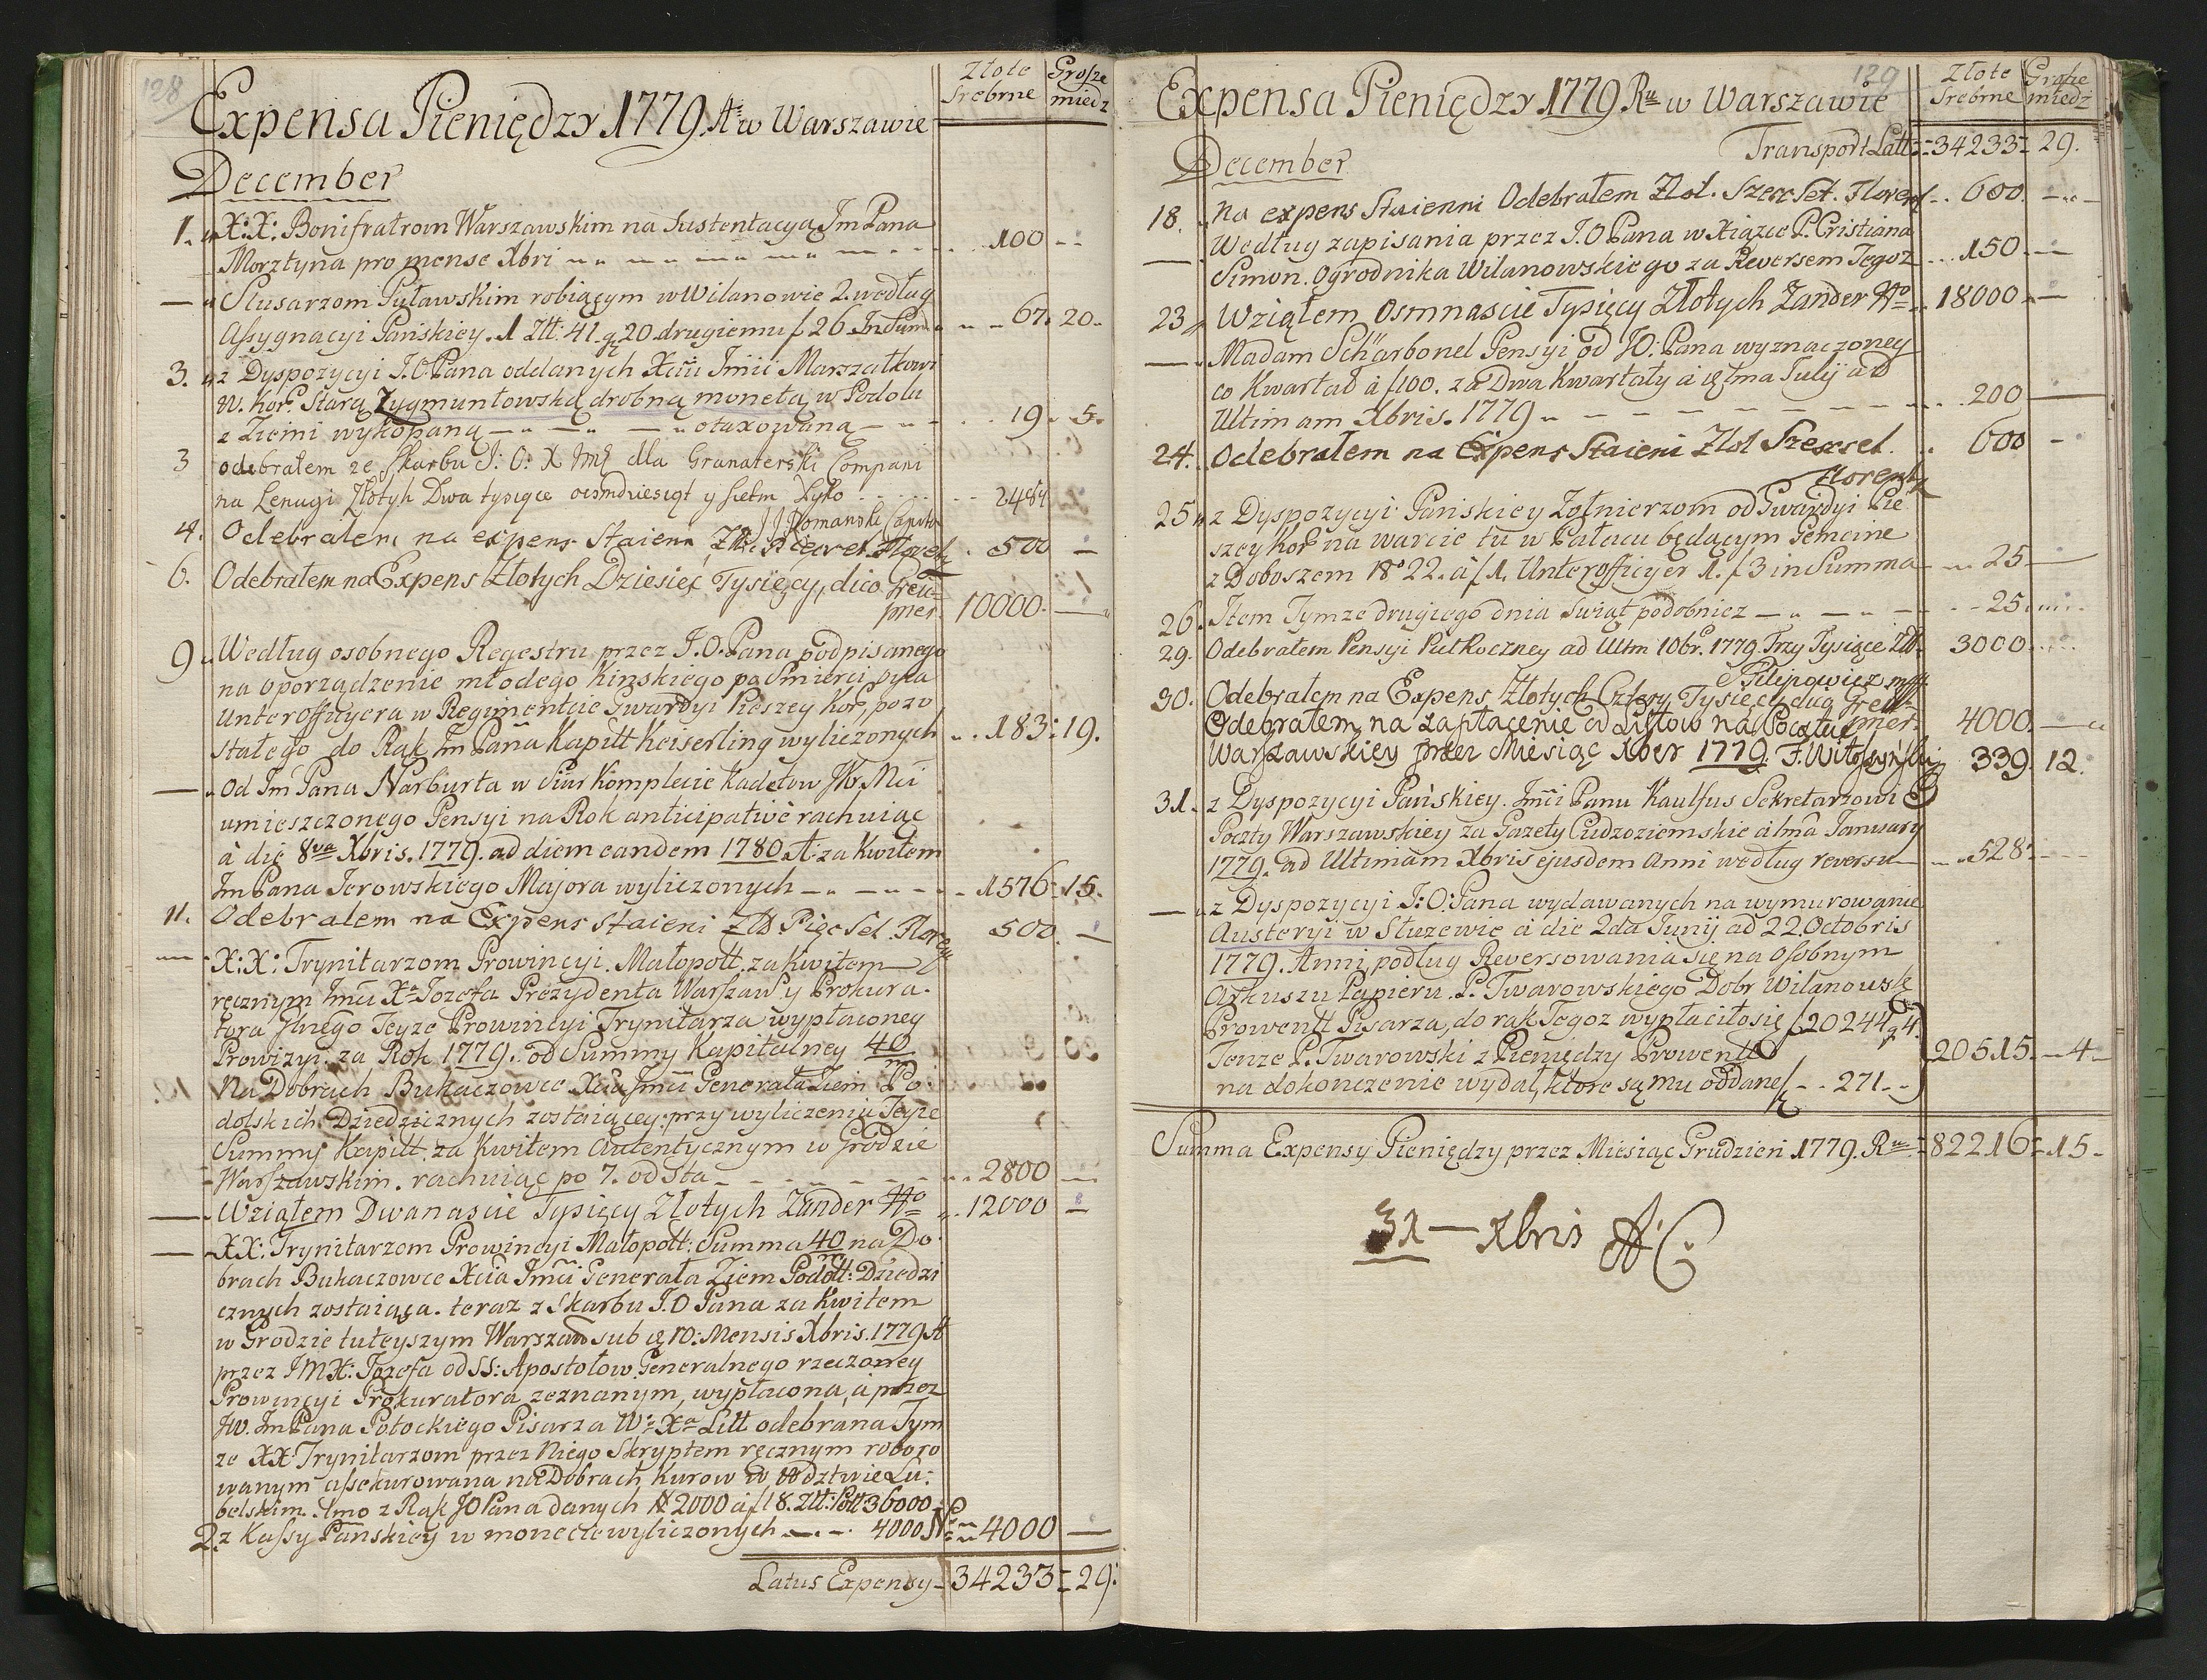 128
Expensa Pieniędzy 1779 Aº w Warszawie
Złote Srebrne
Grosze miedz
December
1. X: X: Bonifratrom Warszawskim na Sustentacyą Jm Pana
Morztyna pro mense Xbri 100
Slusarzom Puławskim robiącym w Wilanowie 2. według
Assygnacyi Pańskiey. 1 Złł: 41 g 20 drugiemu f 26 In Sum̃a 67. 20.
3. z Dyspozycyi J.O Pana oddanych Xciu Jmci Marszałkowi
W. Kor: Starą Zygmuntowską drobną monetą w Podolu
z Ziemi wykopaną otaxowaną 19. 5.
3 odebrałem ze Skarbu J: O: X Jmci dla Granaterski Compani
na Lenugi Złotych Dwa tysiące osmdziesiąt y siedm Tylko 2487
J J Romanski Capitn
4. Odebrałem na expens Staienn Złł. Piecset Floreny 500
6. Odebrałem na Expens Złotych Dziesięć Tysięcy, dico Frey=
mer. 10000.
9 Według osobnego Regestru przez J.O. Pana podpisanego
na oporządzenie młodego Kinskiego po Smierci oyca
Unterofficyera w Regimentcie Gwardyi Pieszey Kor, pozo
stałego do Rąk Jm Pana Kapitt Keiserling wyliczonych 183: 19.
Od Jm Pana Narburta w Siur Komplecie Kadetow JKr Mci
umieszczonego Pensyi na Rok anticipativè rachuiąc
à die 8va Xbris. 1779. ad diem eandem 1780 A. za Kwitem
Jm Pana Jerowskiego Majora wyliczonych 1576. 15.
11. Odebrałem na Expens Staieni Złł. Pięc Set Floren 500
X: X: Trynitarzom Prowincyi Małopoll. za Kwitem
ręcznym Jmci Xa Jozefa Prezydenta Warszaw: y Prokura.
tora Jlnego Teyze Prowincyi Trynitarza wypłaconey
Prowizyi za Rok 1779. od Summy Kapitalney 40/m
Na Dobrach Bukaczowce Xcia Jmci Generała Ziem Po:
dolskich Dziedzicznych zostaiącey: przy wyliczeniu Teyze
Summy Kapitt. za Kwitem Autentycznym w Grodzie
Warszawskim. rachuiąc po 7. od Sta 2800
Wziąłem Dwanascie Tysięcy Złotych Zander 12000
XX: Trynitarzom Prowincyi Małopoll: Summa 40/m na Do
brach Bukaczowce Xcia Jmci Generała Ziem Podoll: Dziedzi
cznych zostaiąca. teraz z Skarbu J.O Pana za Kwitem
w Grodzie tuteyszym Warszaw sub 10: Mensis Xbris. 1779 A
przez JMX: Jozefa od SS: Apostołow Generalnego rzeczoney
Prowincyi Prokuratora zeznanym, wypłacona, a przez
JW. Jm Pana Potockiego Pisarza W: Xa Litt odebrana Tym
ze XX Trynitarzom przez Niego Skryptem ręcznym roboro
wanym assekurowana na Dobrach Kurow w Wdztwie Lu:
belskim. 1mo z Rąk JO Pana danych # 2000 à f 18. Złł: Poll 36000.
2. z Kassy Pańskiey w monecie wyliczonych 4000 4000
Latus Expensy 34233 29.
129
Expensa Pieniędzy 1779 Ru w Warszawie
Złote Srebrne
Grosze miedz
Transport Latt: 34233 29.
December
18. na expens Staienni Odebrałem Złot. Szesc Set. Floren 600.
Według zapisania przez J.O Pana w Xiązce P. Cristiana
Simon. Ogrodnika Wilanowskiego za Reversem Tegoz 150
23 Wziąłem Osmnascie Tysięcy Złotych Zander 18000
Madam Schärbonel Pensyi od JO: Pana wyznaczoney
co Kwartał à f 100. za Dwa Kwartały à 1ma Julij ad
Ultimam Xbris. 1779 200
24. Odebrałem na Expens Staieni Złot Szescset 600
Florenty
25 z Dyspozycyi Pańskiey Zołnierzom od Gwardyi Pie
szey Kor na warcie tu w Pałacu będącym Gemeine
z Doboszem No 22. à f 1. Unterofficyer 1. f 3 in Summa 25
26. Item Tymze drugiego dnia Swiąt podobniez 25
29. Odebrałem Pensyi Pułroczney ad Ultm 10br. 1779. Trzy Tysiące Złł. 3000
Filipowicz mp
30. Odebrałem na Expens Złotych Cztery Tysięcy, dico Frey=
mer. 4000
Odebrałem na zapłacenie od Listow na Poczcie
Warszawskiey przez Miesiąc Xber 1779. F. Witoszyński 339. 12.
31. z Dyspozycyi Pańskiey. Jmci Panu Kaulfus Sekretarzowi
Poczty Warszawskiey za Gazety Cudzoziemskie à 1ma January
1779. ad Ultimam Xbris ejusdem Anni według reversu 528.
z Dyspozycyi J: O: Pana wydawanych na wymurowanie
Austeryi w Słuzewie à die 2da Junij ad 22. Octobris
1779. Anni podług Reversowania się na Osobnym
Arkuszu Papieru. P. Twarowskiego Dobr Wilanowsk
Prowentt Pisarza, do rąk Tegoz wypłaciło się f 20244 g 4.
Tenze P. Twarowski z Pieniędzy Prowentt 20515. 4
na dokonczenie wydał, ktore są mu oddane f 271.
Summa Expensy Pieniędzy przez Miesiąc Grudzień 1779. Ru 82216 15
31 Xbris AC